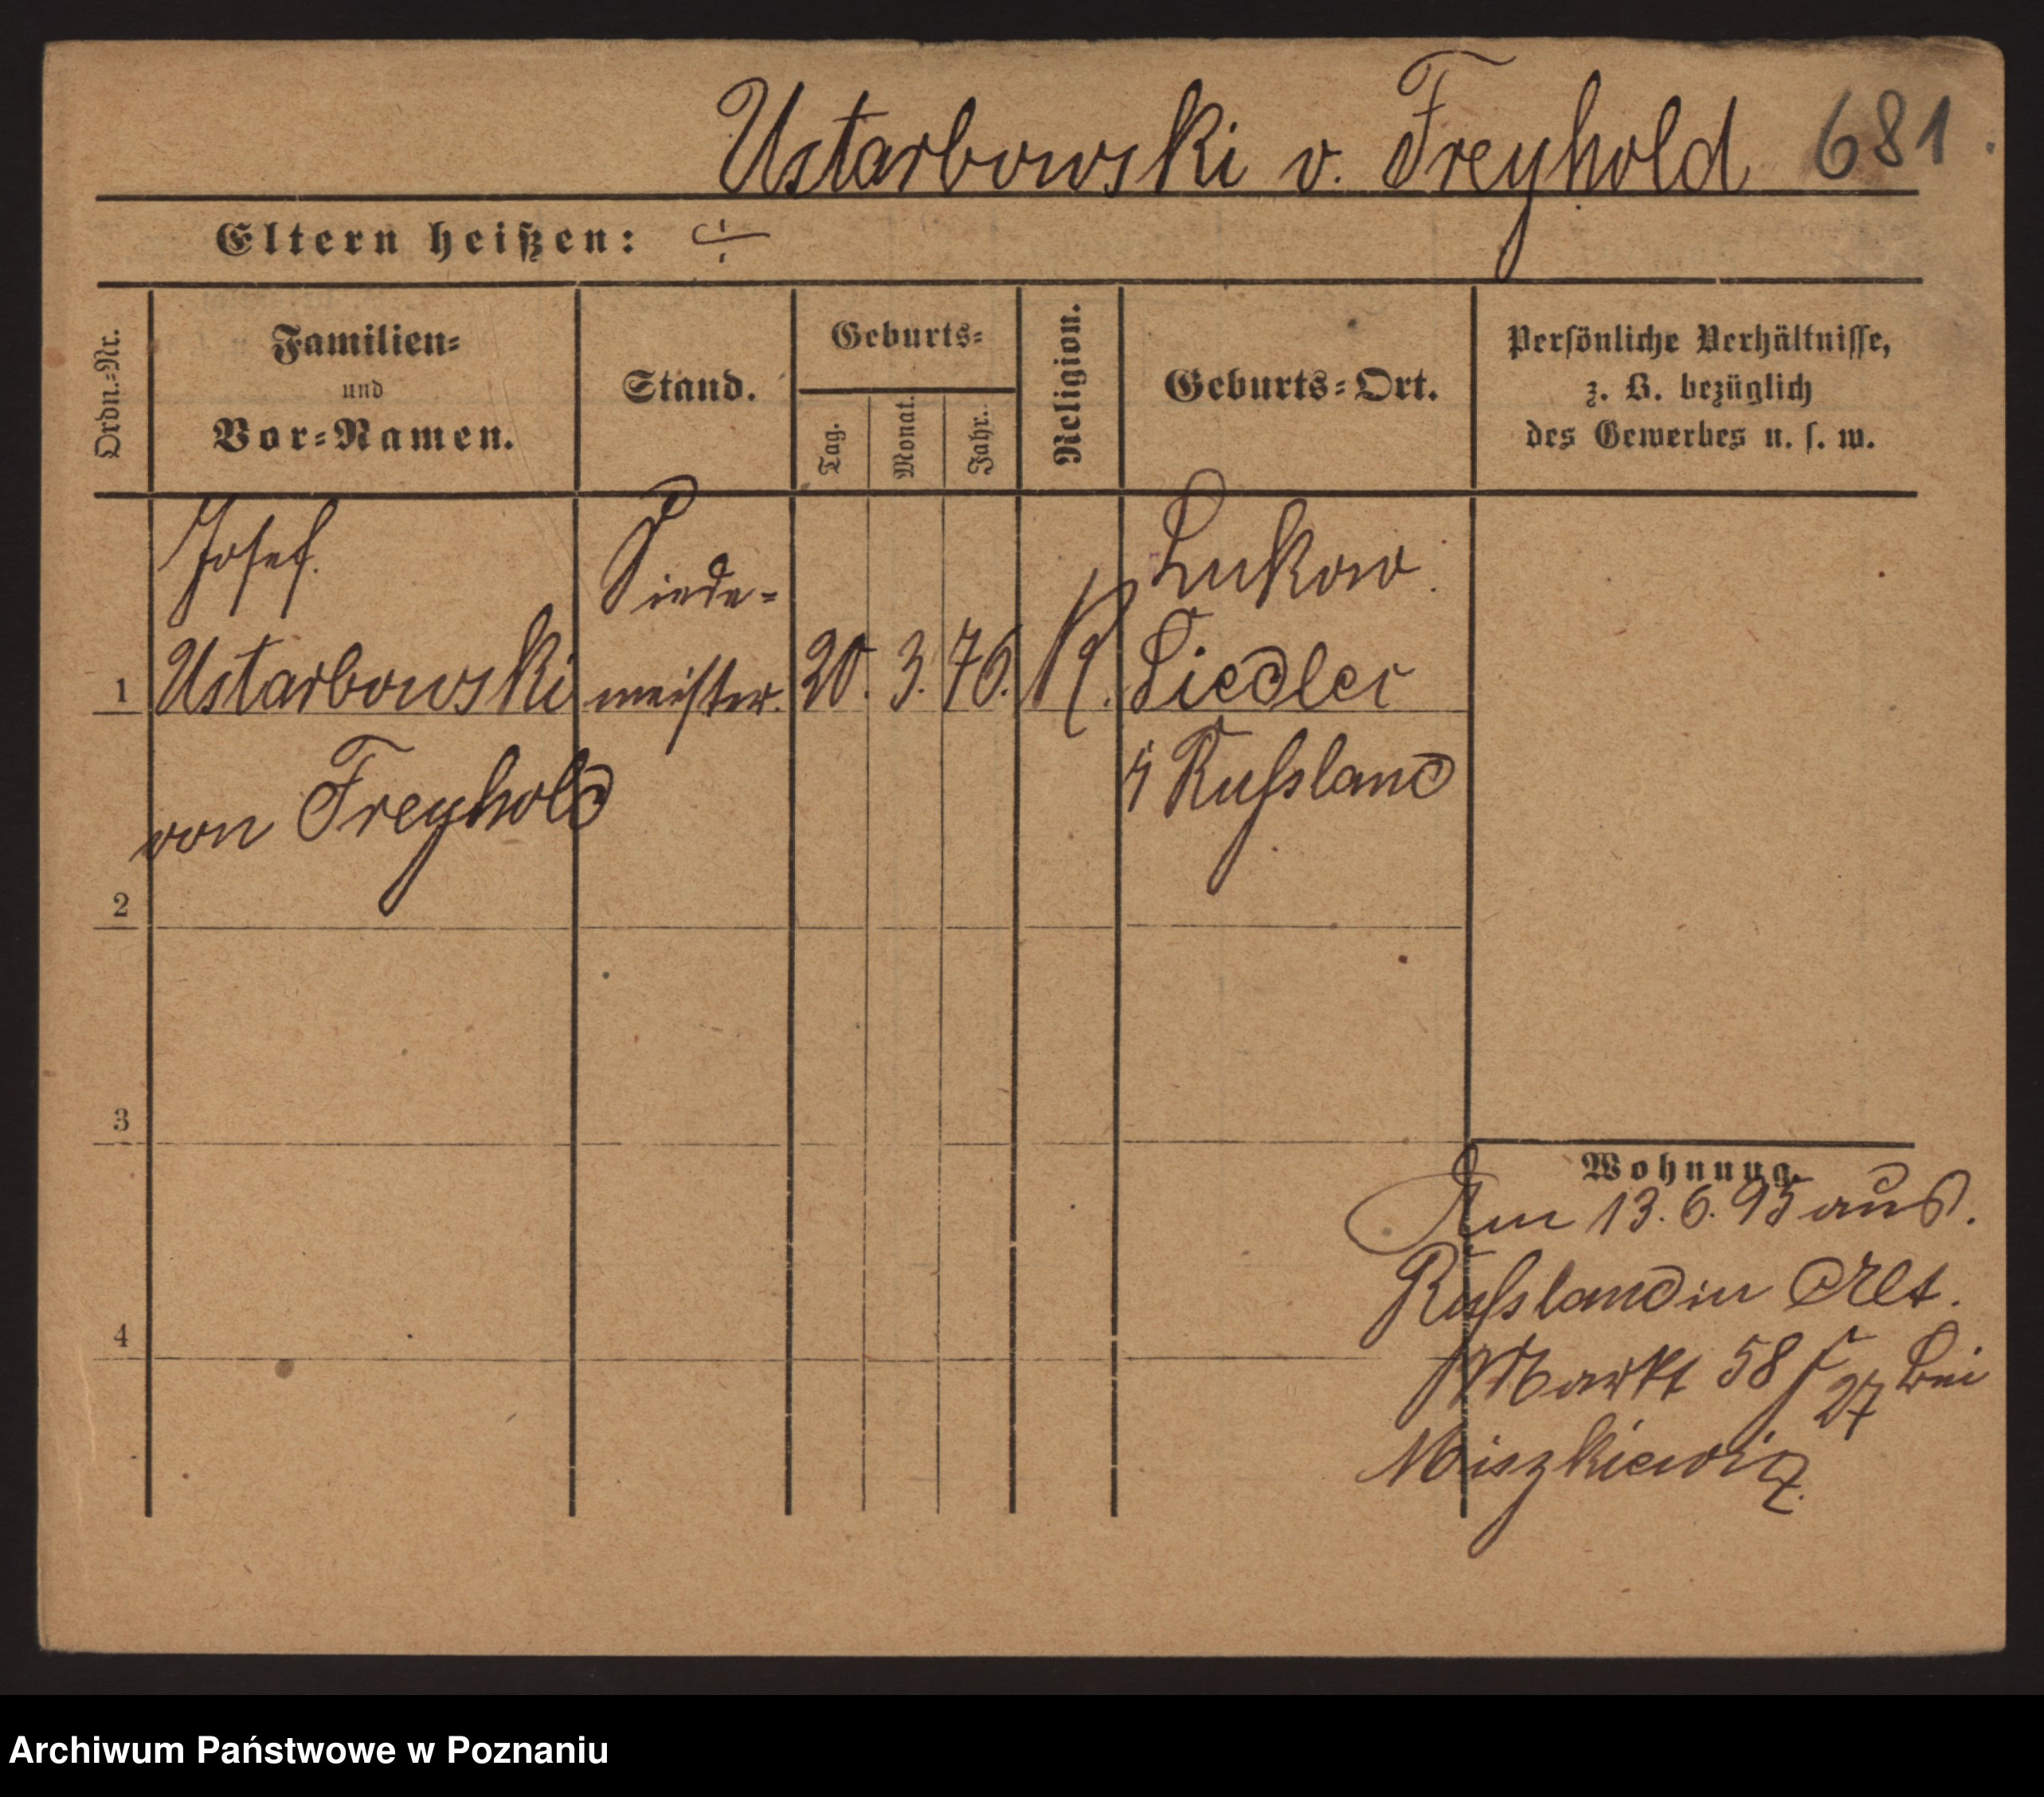 Ustarbowski v. Freyhold 681.
Eltern heißen: ÷
Ordn.=Nr.
Familien=
und
Vor=Namen.
Stand.
Geburts=
Tag.
Monat.
Jahr.
Religion.
Geburts=Ort.
Persönliche Verhältnisse,
z. B. bezüglich
des Gewerbes u. s. w.
Josef.
Siede=
Lukow.
1 Ustarbowski meister. 20. 3. 76. K. Siedlec
von Freyhold
i Russland
2
3
4
Wohnung.
Am 13. 6. 95 aus.
Russland in Alt.
Markt 58 f 27 bei
Miszkiewicz.
Archiwum Państwowe w Poznaniu